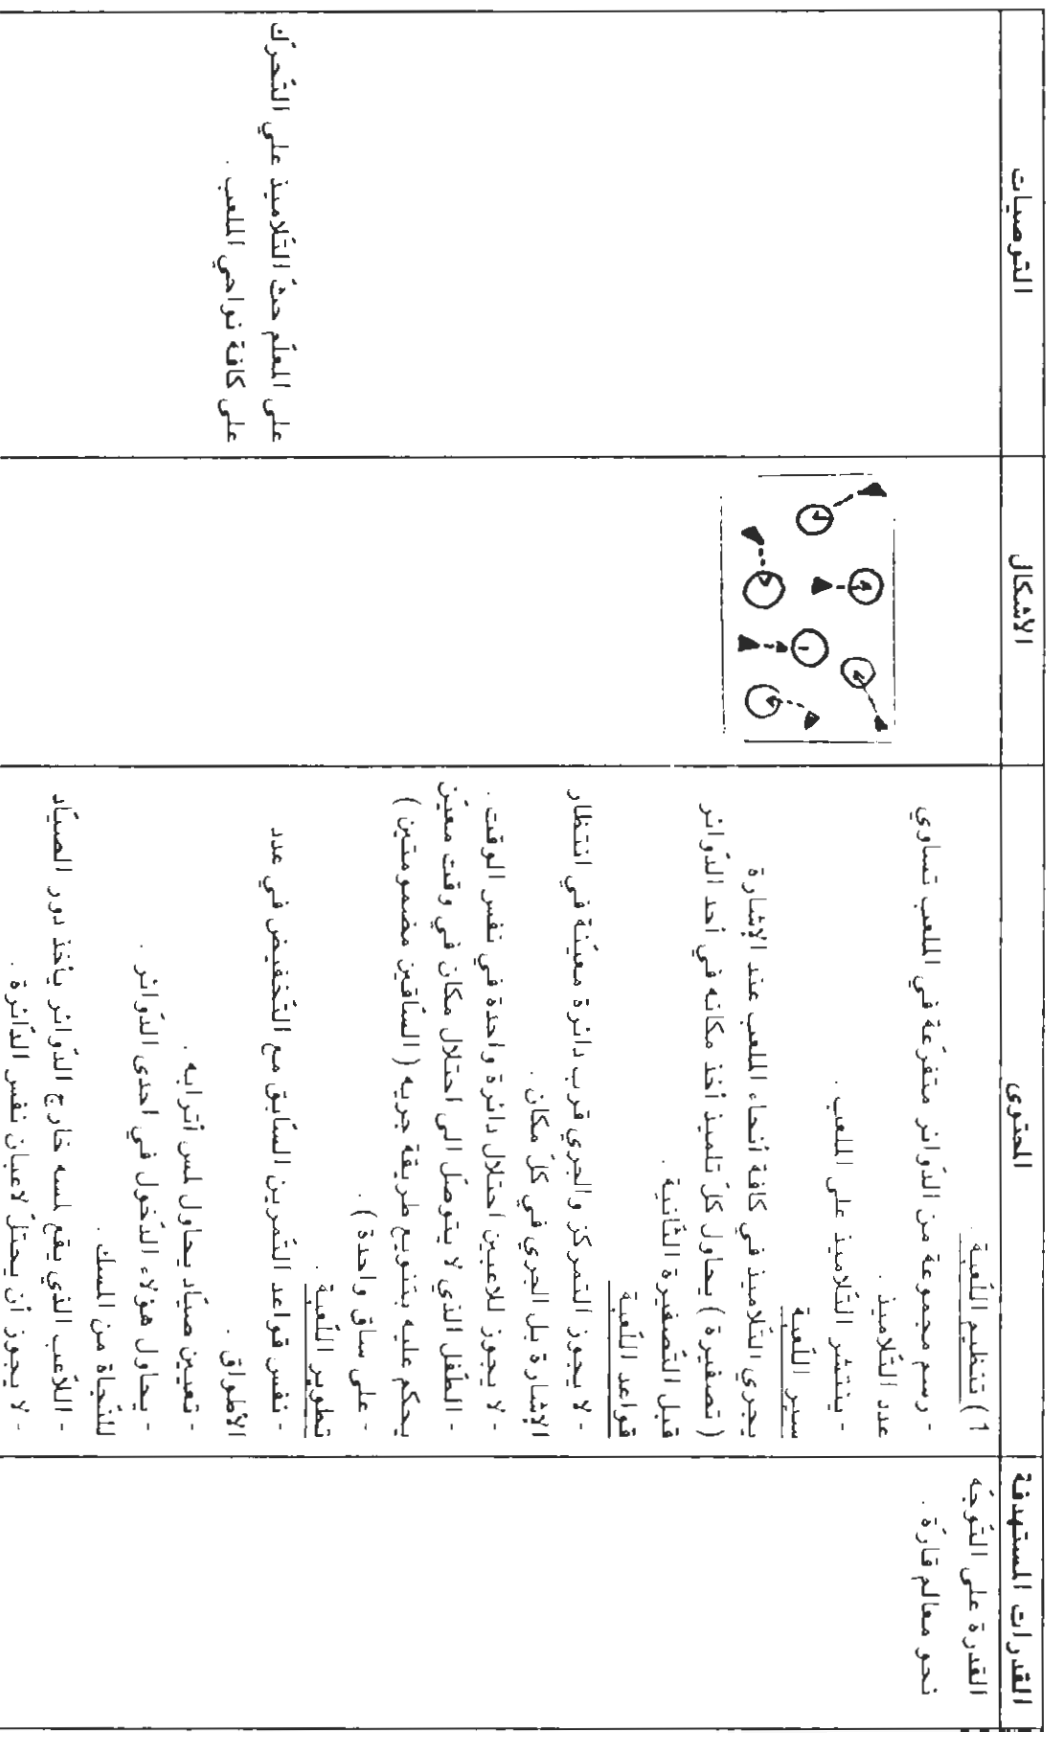 القدرات المستهدفة
المحتوى
الاشكال
التوصيات
القدرة على التّوجّه
نحو معالم قارّة .
1) تنظيم اللّعبة
- رسم مجموعة من الدّوائر متفرّعة في الملعب تساوي
عدد التّلاميذ .
- ينتشر التّلاميذ على الملعب .
سير اللّعبة
يجري التّلاميذ في كافة أنحاء الملعب عند الإشارة
( تصفيرة ) يحاول كلّ تلميذ أخذ مكانه في أحد الدّوائر
قبل التّصفيرة الثّانية .
قواعد اللّعبة
- لا يجوز التمركز والجري قرب دائرة معيّنة في انتظار
الإشارة بل الجري في كلّ مكان .
- لا يجوز للاعبين احتلال دائرة واحدة في نفس الوقت .
- الطّفل الذي لا يتوصّل الى احتلال مكان في وقت معيّن
يحكم عليه بتنويع طريقة جريه ( السّاقين مضمومتين )
- على ساق واحدة ) .
تطوير اللّعبة .
- نفس قواعد التّمرين السّابق مع التّخفيض في عدد
الأطواق .
- تعيين صيّاد يحاول لمس أترابه .
- يحاول هؤلاء الدّخول في احدى الدّوائر .
للنّجاة من المسك .
- اللاّعب الذي يقع لمسه خارج الدّوائر يأخذ دور الصيّاد
- لا يجوز أن يحتلّ لاعبان نفس الدّائرة .
على المعلّم حثّ التّلاميذ علي التّحرّك
على كافة نواحي الملعب .